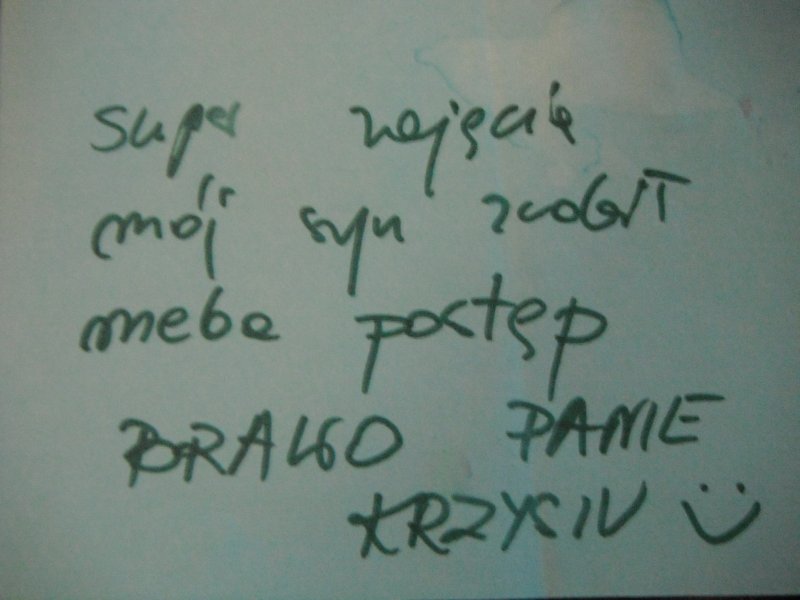 super zajęcia
mój syn zrobił
mega postęp
BRAWO PANIE
KRZYSIU